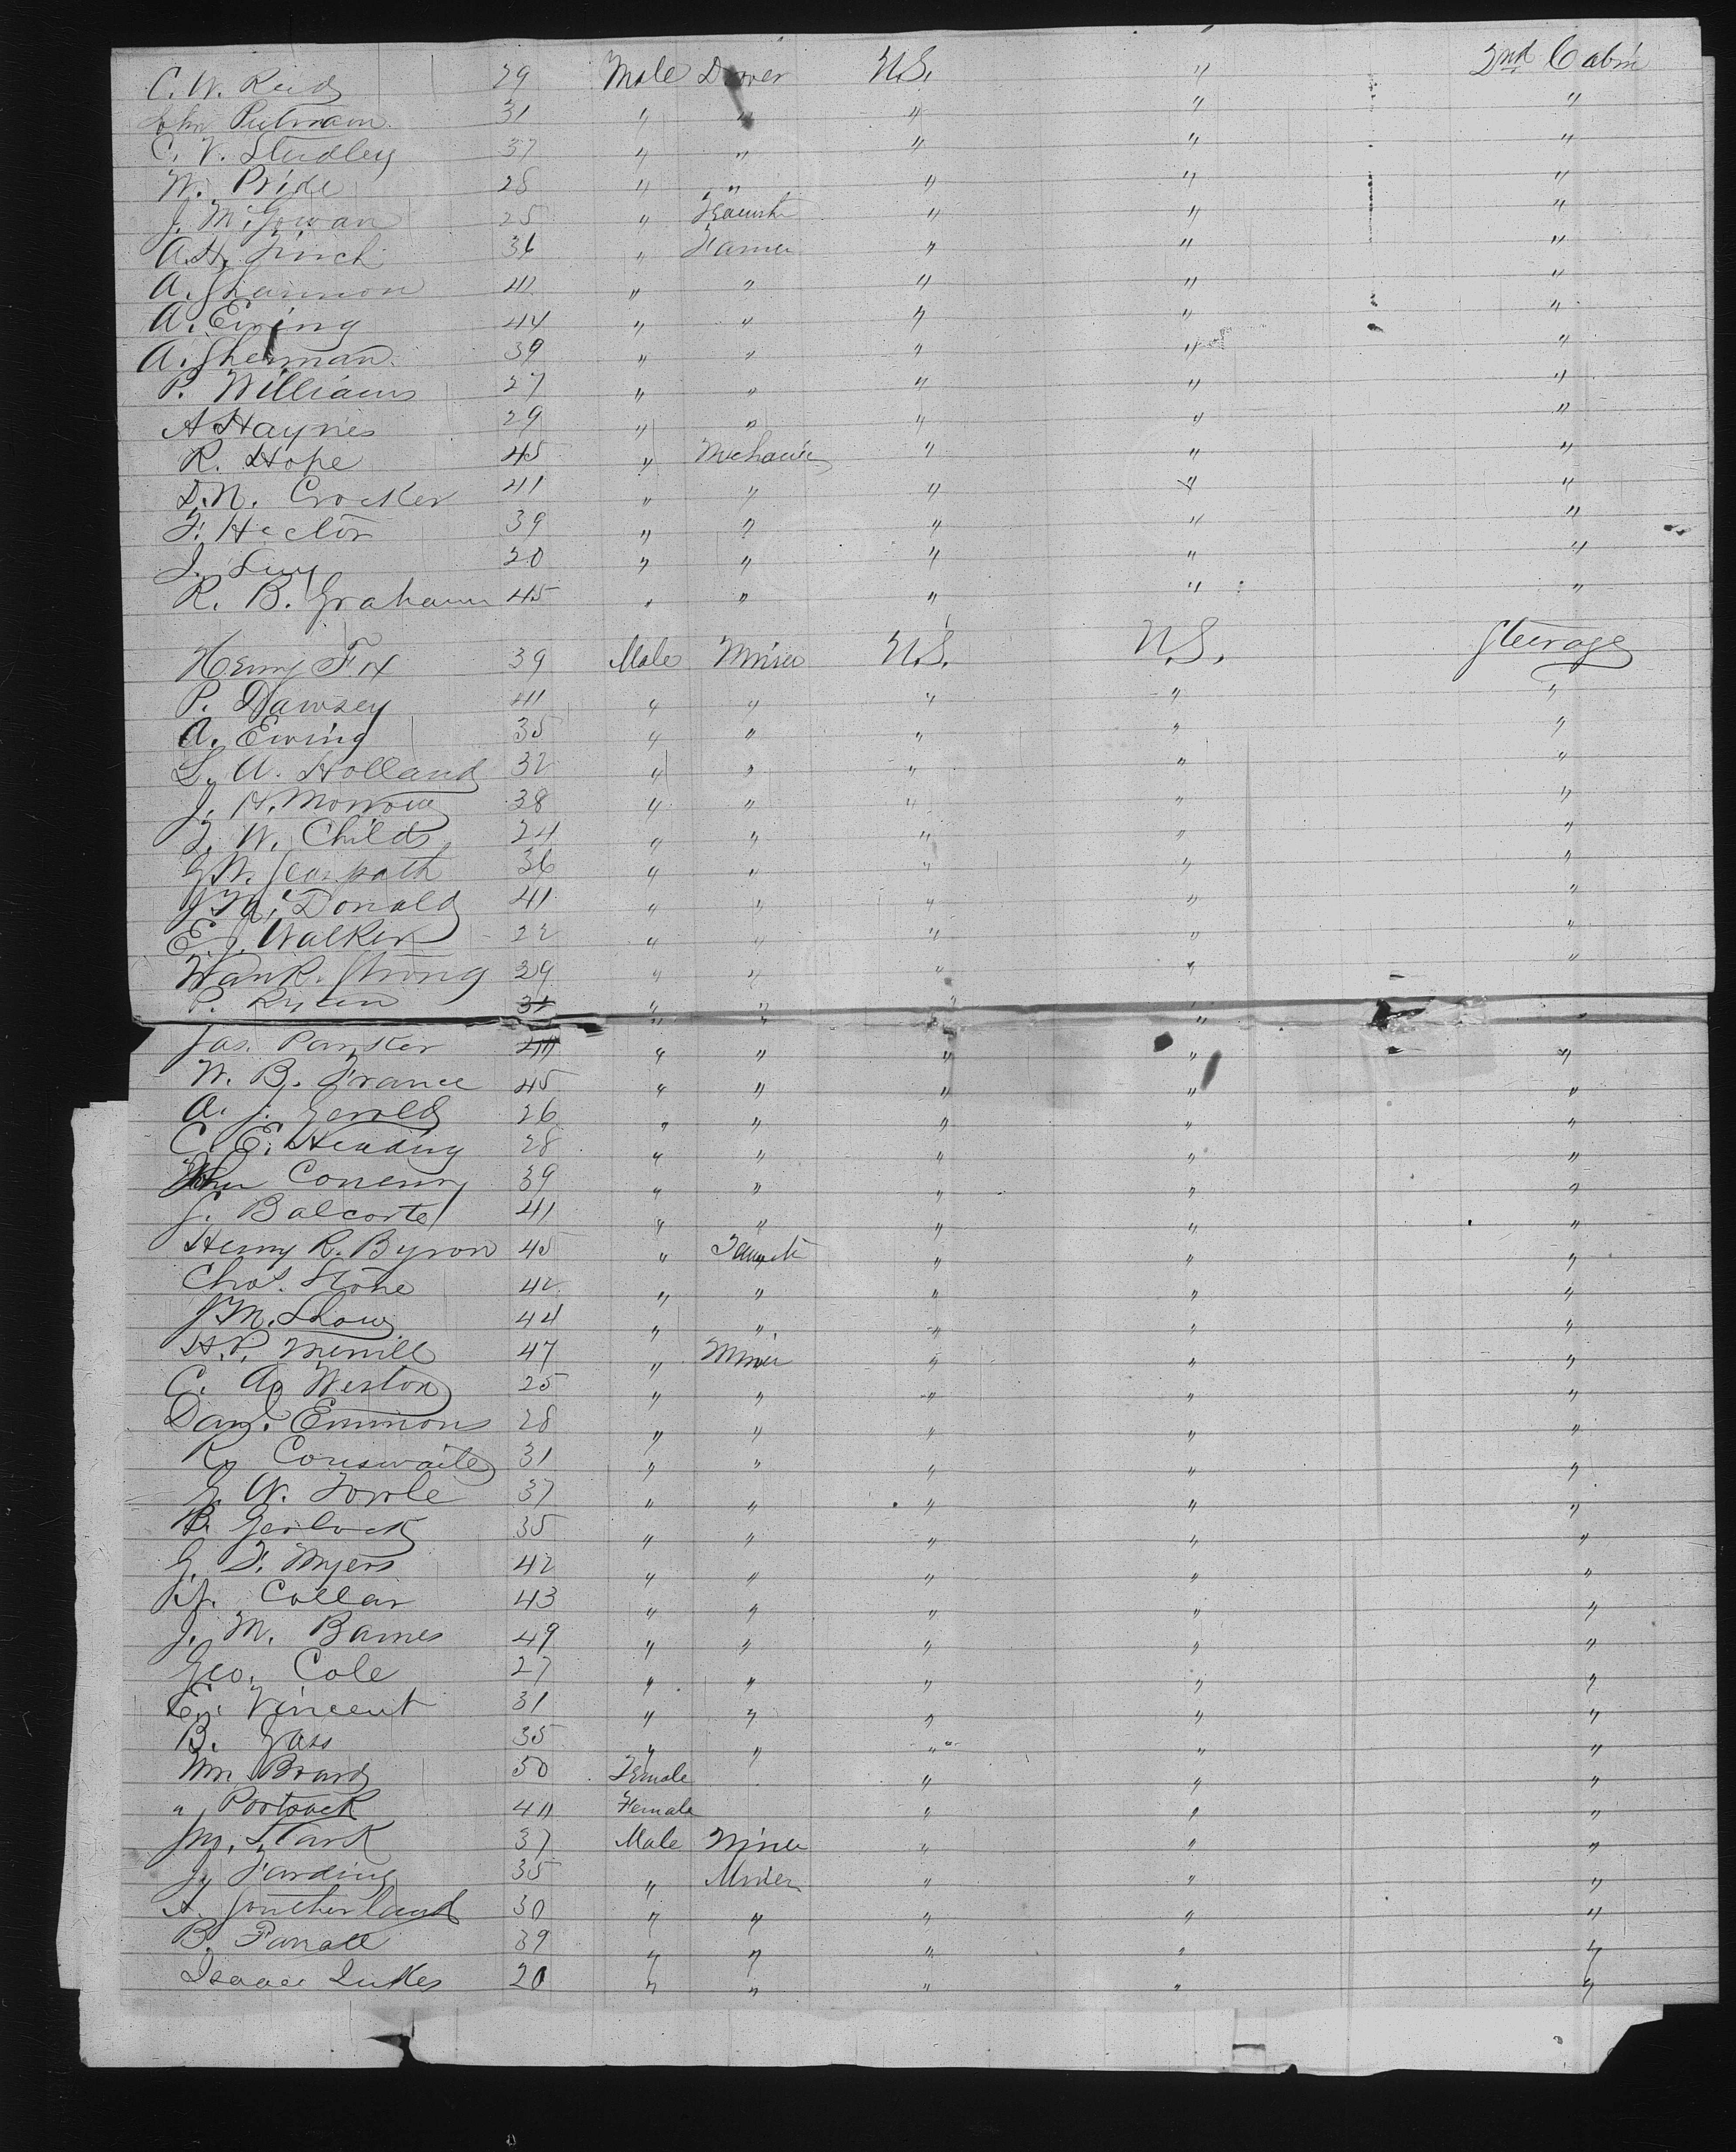 C. W. Reid 29 Male Drover U.S. " 2nd Cabin
John Putnam 31 " " " " "
C. V. Studley 37 " " " " "
W. Pride 28 " " " " "
J. McGowan 25 " " " "
A. H. Finch 36 " Farmer " " "
A. Shannon 411 " " " " "
A. Ewing 44 " " " " "
A. Sherman 39 " " " " "
P. Williams 27 " " " " "
A Haynes 29 " " " " "
R. Hope 45 " Mechanic " " "
D. N. Crocker 41 " " " " "
F. Hector 39 " " " " "
J. 20 " " " " "
R. B. Graham 45 " " " " "
Henry Fox 39 Male Miner U.S. U.S. Steerage
P. Dawsey 411 " " " " "
A. Ewing 35 " " " " "
L. A. Holland 32 " " " " "
J. H. Morrow 38 " " " " "
J. W. Childs 24 " " " " "
G. W. 36 " " " " "
J McDonald 41 " " " " "
E. J. Walker 22 " " " " "
Strong 29 " " " " "
P. Ryan " " " "
Jas. Parker " " " " "
W. B. France 45 " " " " "
A. J. Gerold 26 " " " " "
C. E. Heading 28 " " " " "
John 39 " " " " "
J. Balcorte 41 " " " " "
Henry R. Byron 45 " " " "
Chas. Stone 42 " " " " "
J M. Show 44 " " " " "
H. P. Merrill 47 " Miner " " "
C. A. Weston 25 " " " " "
Danl. Emmons 28 " " " " "
R. Couswaite 31 " " " " "
G. W. Towle 37 " " " " "
B. Gerlock 35 " " " " "
G. F. Myers 42 " " " " "
Collar 43 " " " " "
J. M. Barnes 49 " " " " "
Geo. Cole 27 " " " " "
E. Vincent 31 " " " " "
B. Gass 35 " " " " "
Board 50 Female " " "
" 411 Female " " "
Stark 37 Male Miner " " "
J. Farding 35 " Miner " " "
A. Southerland 30 " " " " "
B. Farrall 39 " " " " "
Isaac Lukes 20 " " " " "